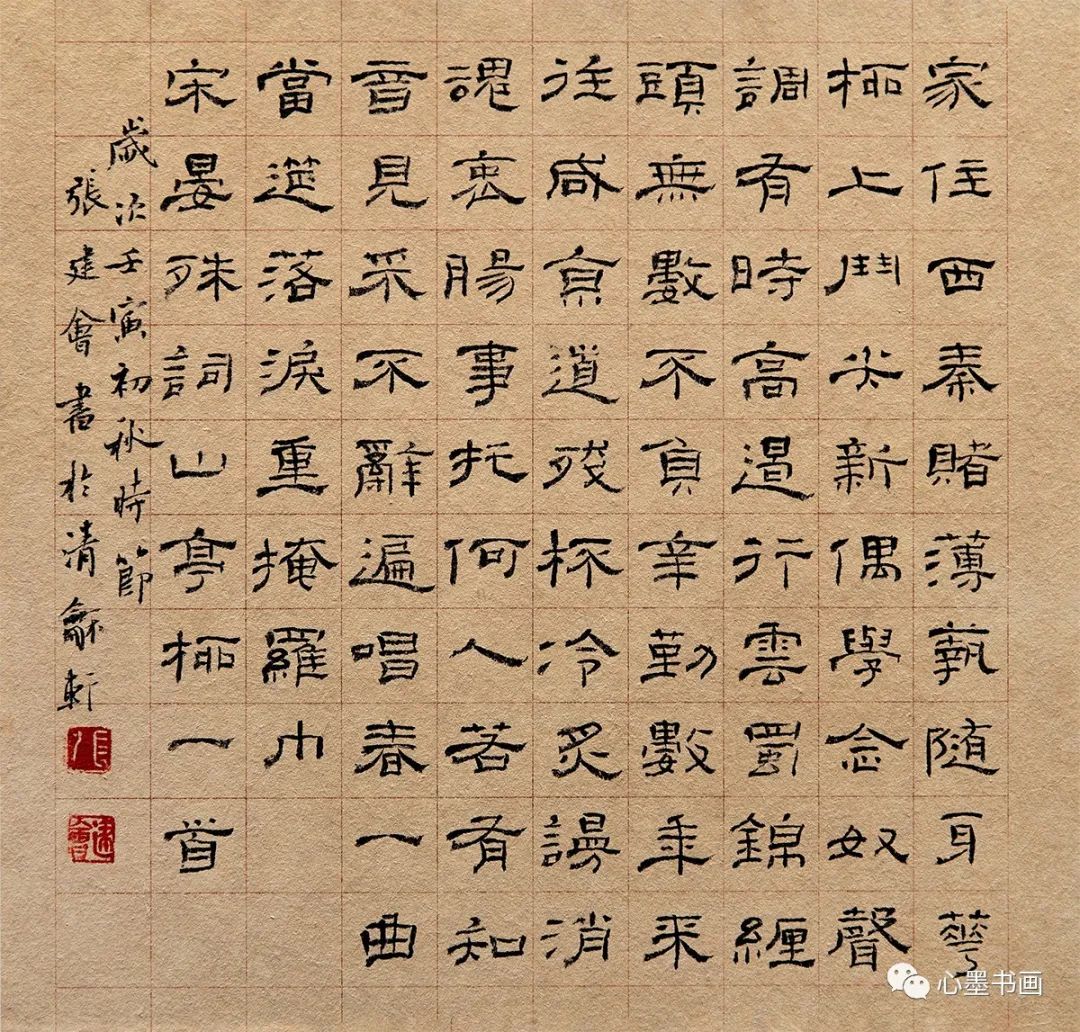 家住西秦賭薄埶隨身華
柳上鬥尖新偶學念奴聲
調有時高遏行雲蜀錦纏
頭無數不負辛勤數年來
往咸京道殘杯冷炙謾消
魂衷腸事托何人若有知
音見采不辭遍唱春一曲
當筵落淚重掩羅巾
宋晏殊詞山亭柳一首
歲次壬寅初秋時節
張建會書於清龢軒
張
建會
心墨书画